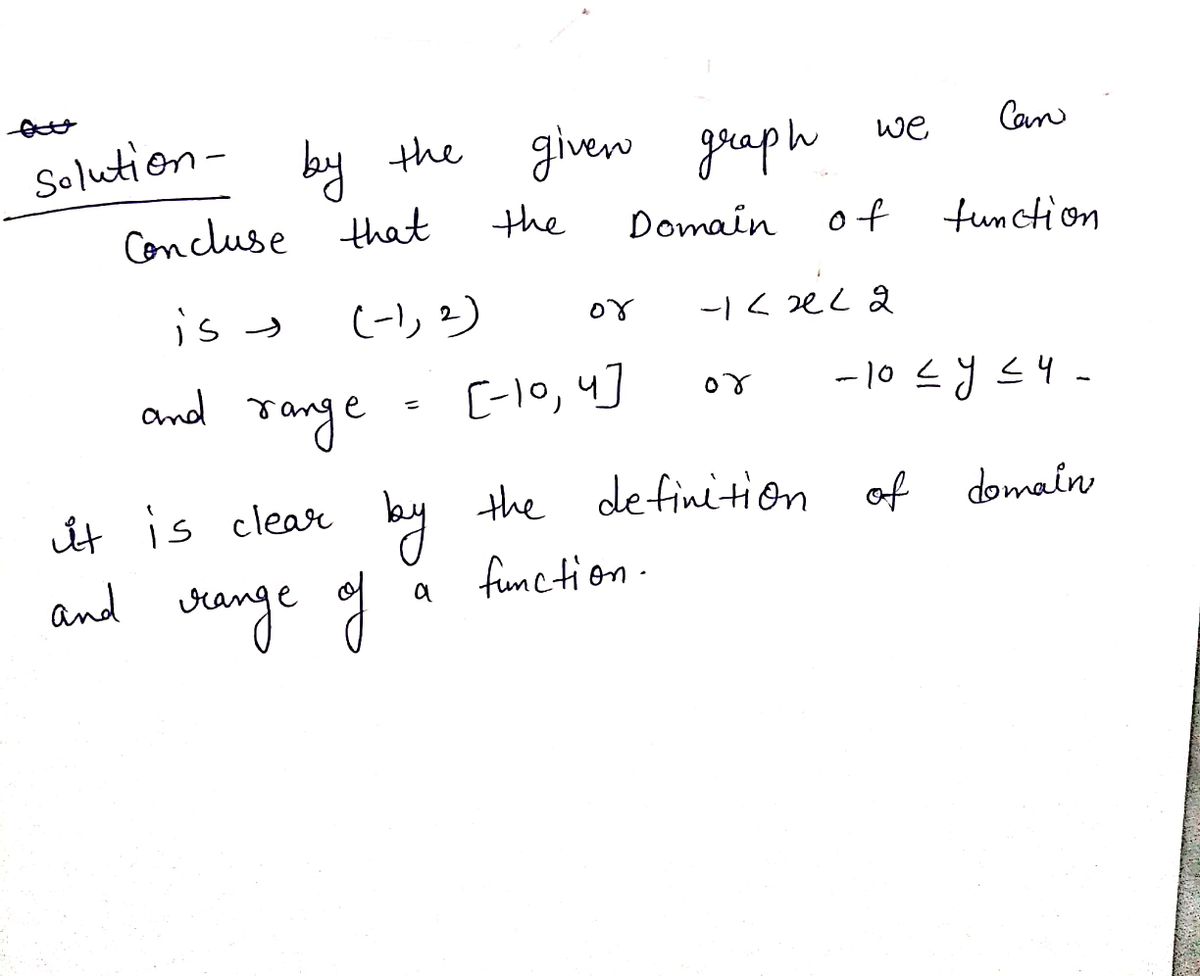 Solution- by the given graph we Can
Concluse that the Domain of function
is → (-1, 2) or -1 < x < 2
and range = [-10, 4] or -10 ≤ y ≤ 4 -
it is clear by the definition of domain
and range of a function.